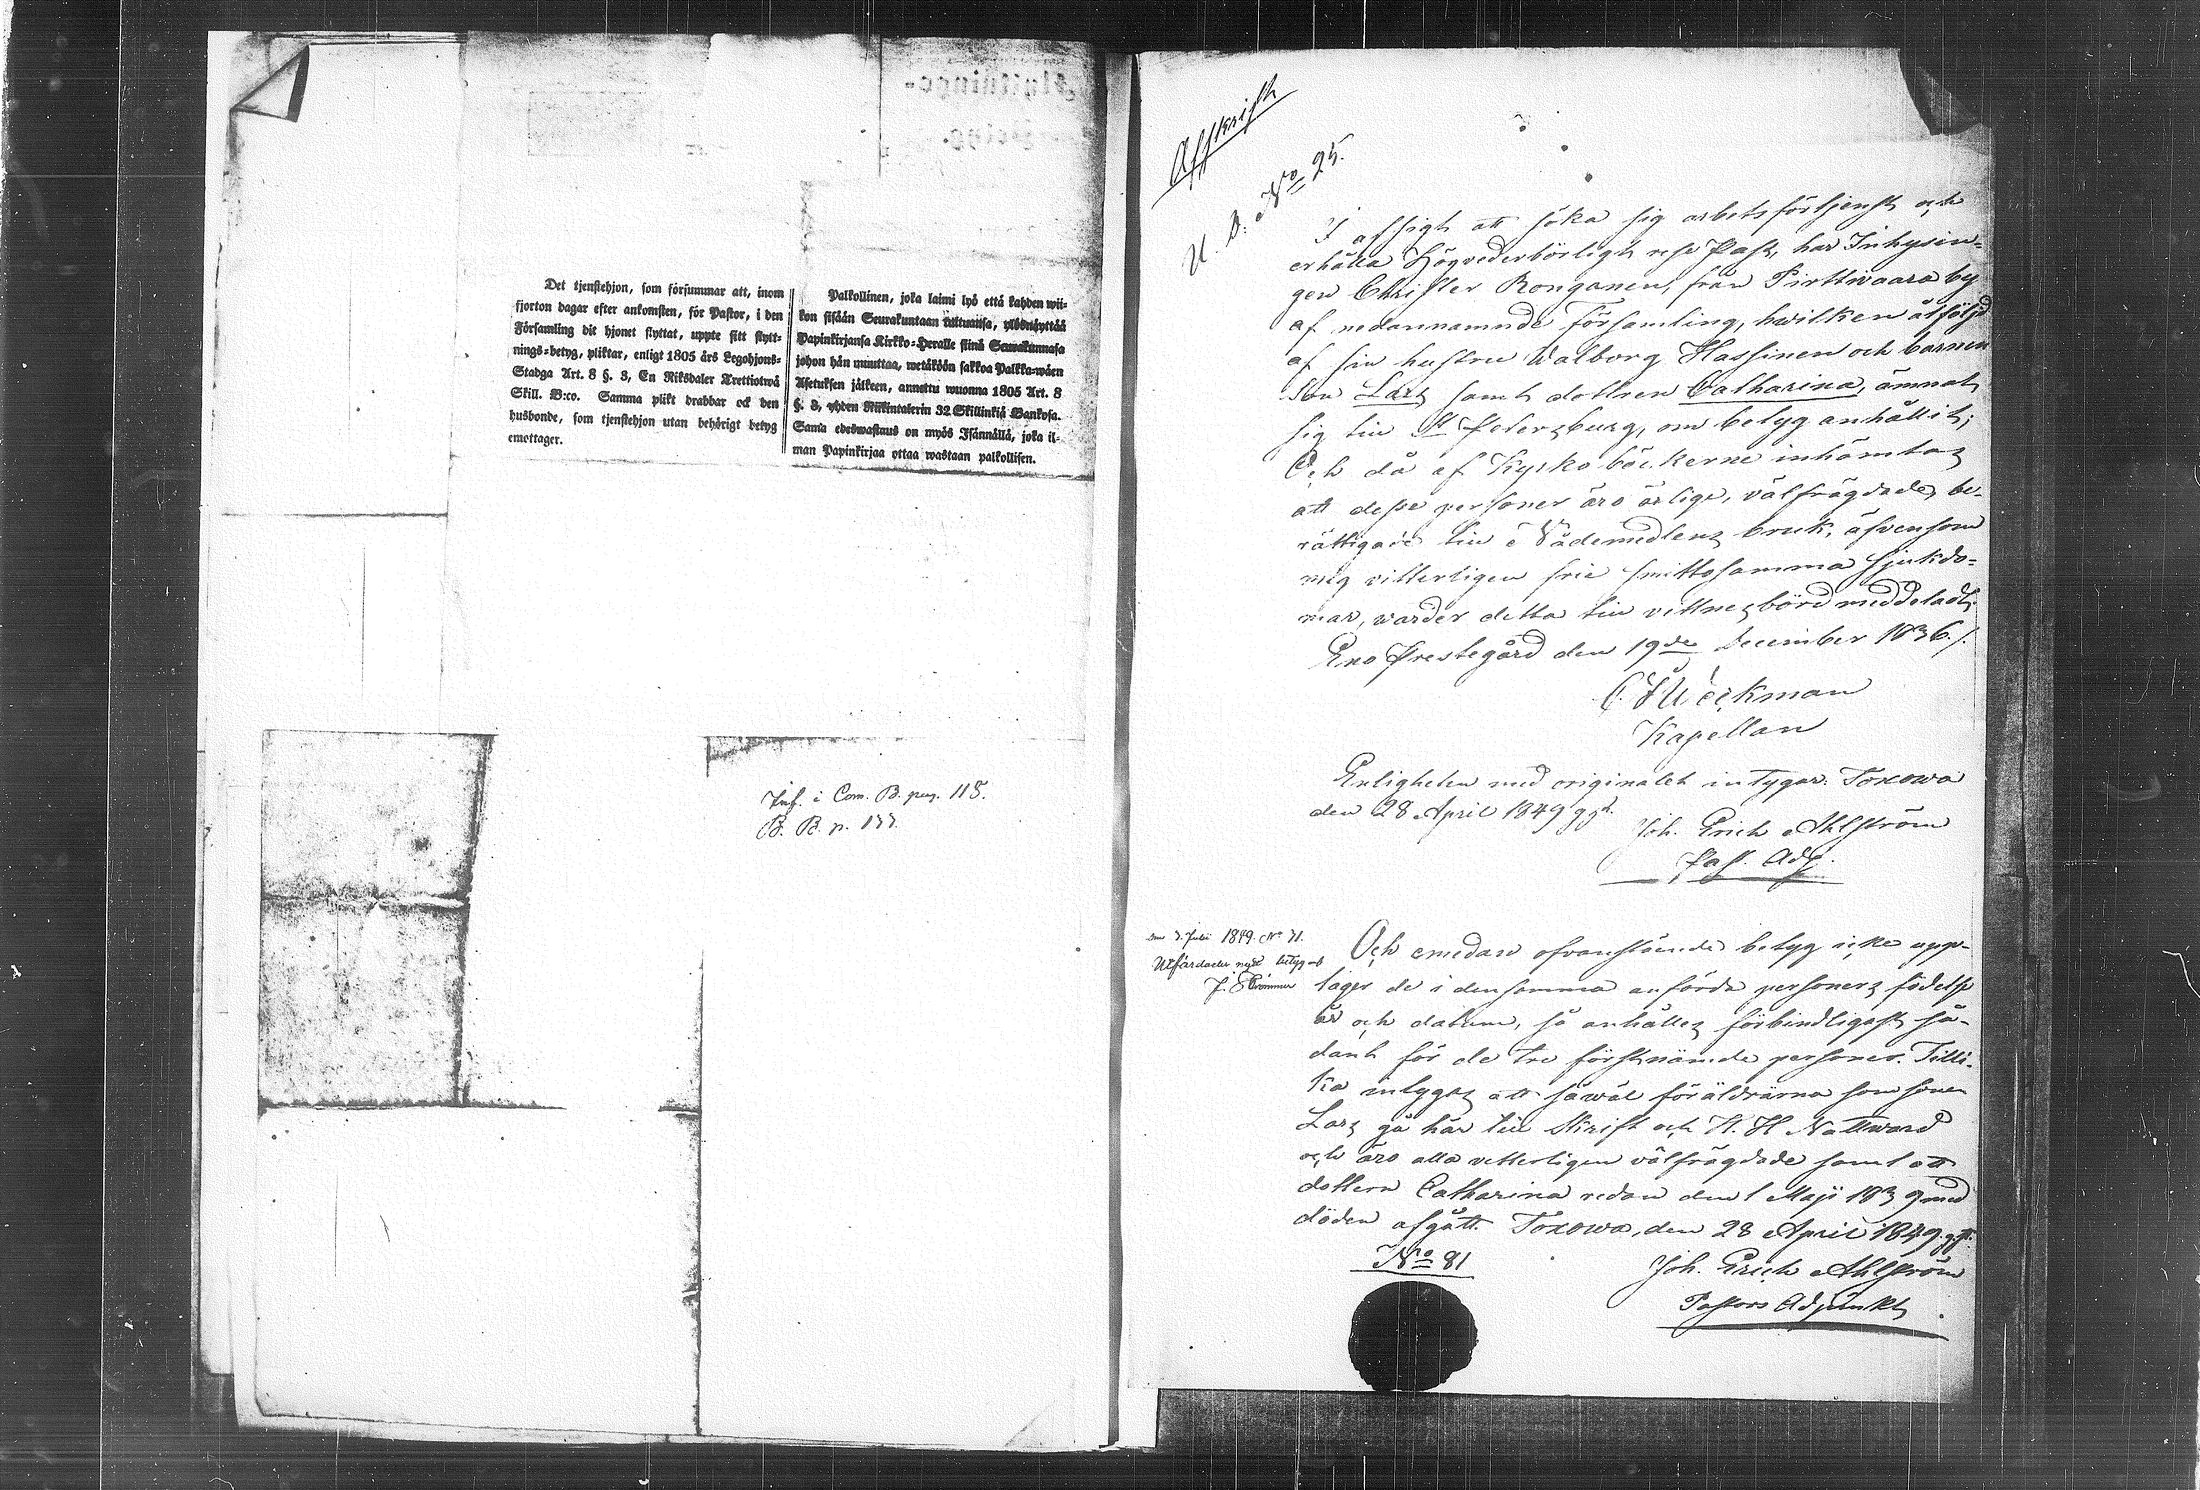 Det tjenstehjon, som försummar att, inom
fjorton dagar efter ankomsten, för Pastor, i den
Församling dit hjonet flyttat, uppte sitt flytt-
nings-betyg, pliktar, enligt 1805 års Legohjons-
Stadga Art. 8 §. 3, En Riksdaler Trettiotwå
Skill. B:co. Samma plikt drabbar ock den
husbonde, som tjenstehjon utan behörigt betyg
emottager.
Palkollinen, joka laimi lyö että kahden wii-
kon sisään Seurakuntaan tultuansa, ylösnäyttää
Papinkirjansa Kirkko-Herralle siinä Seurakunnasa
johon hän muuttaa, wetäköön sakkoa Palkka-wäen
Asetuksen jälkeen, annettu wuonna 1805 Art. 8
§. 3, yhden Riikintalerin 32 Skillinkiä Bankosa.
Sama edeswastaus on myös Isännällä, joka il-
man Papinkirjaa ottaa wastaan palkollisen.
Inf. i Com. B. pag. 115.
B. B. p. 133.
Afskrift
U. B. No 25.
I afsigt att söka sig arbetsförtjenst och
erhålla Högvederbörligt rese Pass, har Inhysin-
gen Christer Ronganen, från Pirttivaara by
af nedannamnde Församling, hwilken åtföljd
af sin hustru Walborg Hassinen och barnen
Son Lars samt dottren Catharina, ämnat
sig till St Petersburg, om betyg anhållit;
Och då af Kyrko böckerne inhämtas
att desse personer äro ärlige, välfrägdade, be-
rättigade till Nådemedlens bruk, äfvensom
mig vitterligen frie smittosamma sjukdo-
mar, warder detta till vittnesbörd meddeladt.
Eno Prestegård den 19de December 1836./.
Wäckman
Kapellan
Enligheten med originalet intygar. Toxowa
den 28 April 1849 g. st.
Joh. Erich Ahlström
Past. Adj.
den 3 Julii 1849. No 71.
Utfärdades nytt betyg af
Och emedan ofvanstående betyg icke upp-
tager de i densamma anförda personers födelse
år och datum, så anhålles förbindligast så-
dant för de tre förstnämde personer. Tilli-
ka intygas att såwäl föräldrarna som sonen
Lars gå här till Skrift och H. H. Nattward
och äro alla vetterligen välfrägdade samt att
dottern Catharina redan den 1 Maji 1839 med
döden afgått. Toxowa, den 28 April 1849. g. st.
No 81
Joh. Erich Ahlström
Pastors Adjunkt